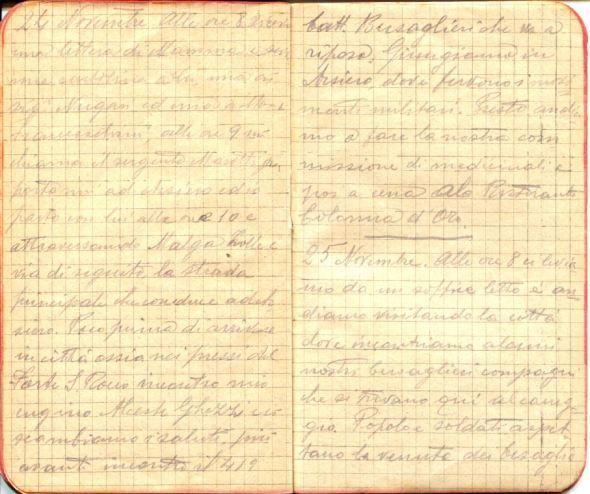 24 Novembre Alle ore 8
lettera di Mamma e
cartolina a lui, una ai
ed una
alle ore 9
il sergente
ad Arsiero ed io
parto con lui alle ore 10 e
attraversando Malga Zolle e
via di seguito la strada
principale che conduce ad Ar
siero. Poco prima di arrivare
in città ossia nei pressi del
Forte S. Rocco incontro mio
cugino Ghezzi e ci
scambiamo i saluti, più
avanti incontro il 419
batt. Bersaglieri che va a
riposo. Giungiamo in
Arsiero, dove fervono i movi
menti militari. Tosto andia
mo a fare la nostra com
missione di medicinali e
poi a cena al Ristorante
Colonna d'Oro.
25 Novembre. Alle ore 8 ci levia
mo da un soffice letto e an
diamo visitando la città
dove incontriamo alcuni
nostri bersaglieri compagni
che si trovano qui al carreg
gio. Popolo e soldati aspet
tano la venuta dei bersaglie